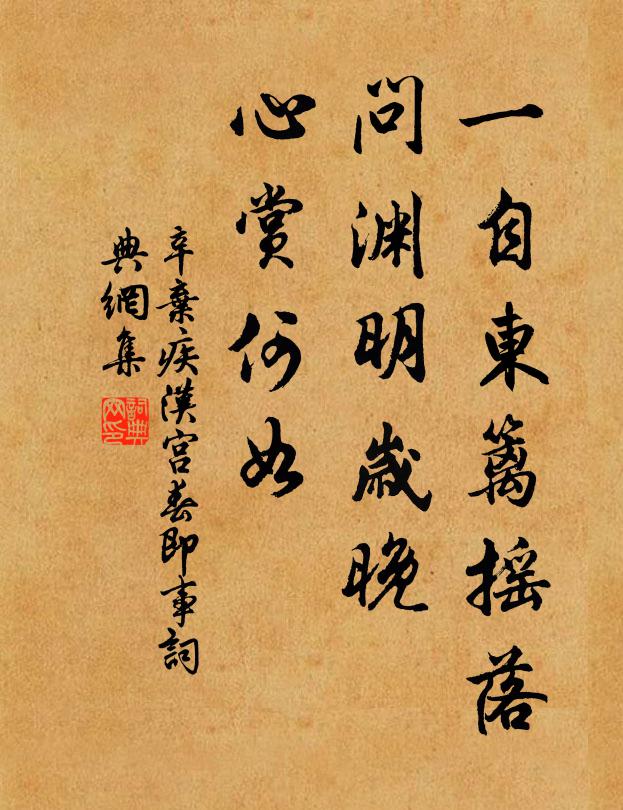 一自東籬摇落
問渊明歲晚
心賞何如
辛棄疾漢宮春即事詞
典網集
詞典
网印